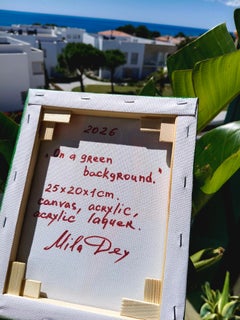 2026
„On a green
background."
25x20x1cm.
canvas, acrylic,
acrylic laquer.
Mila Dey